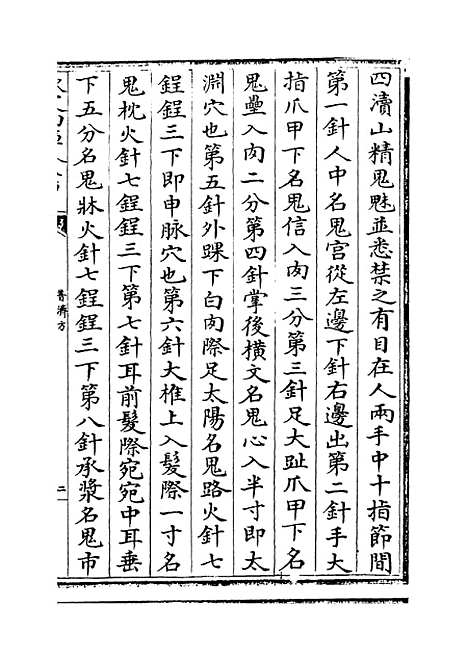 四瀆山精鬼魅並悉禁之有目在人兩手中十指節間
第一針人中名鬼宮從左邊下針右邊出第二針手大
指爪甲下名鬼信入肉三分第三針足大趾爪甲下名
鬼壘入肉二分第四針掌後橫文名鬼心入半寸即太
淵穴也第五針外踝下白肉際足太陽名鬼路火針七
鋥鋥三下即申脉穴也第六針大椎上入髮際一寸名
鬼枕火針七鋥鋥三下第七針耳前髮際宛宛中耳垂
下五分名鬼牀火針七鋥鋥三下第八針承漿名鬼市
普濟方
二